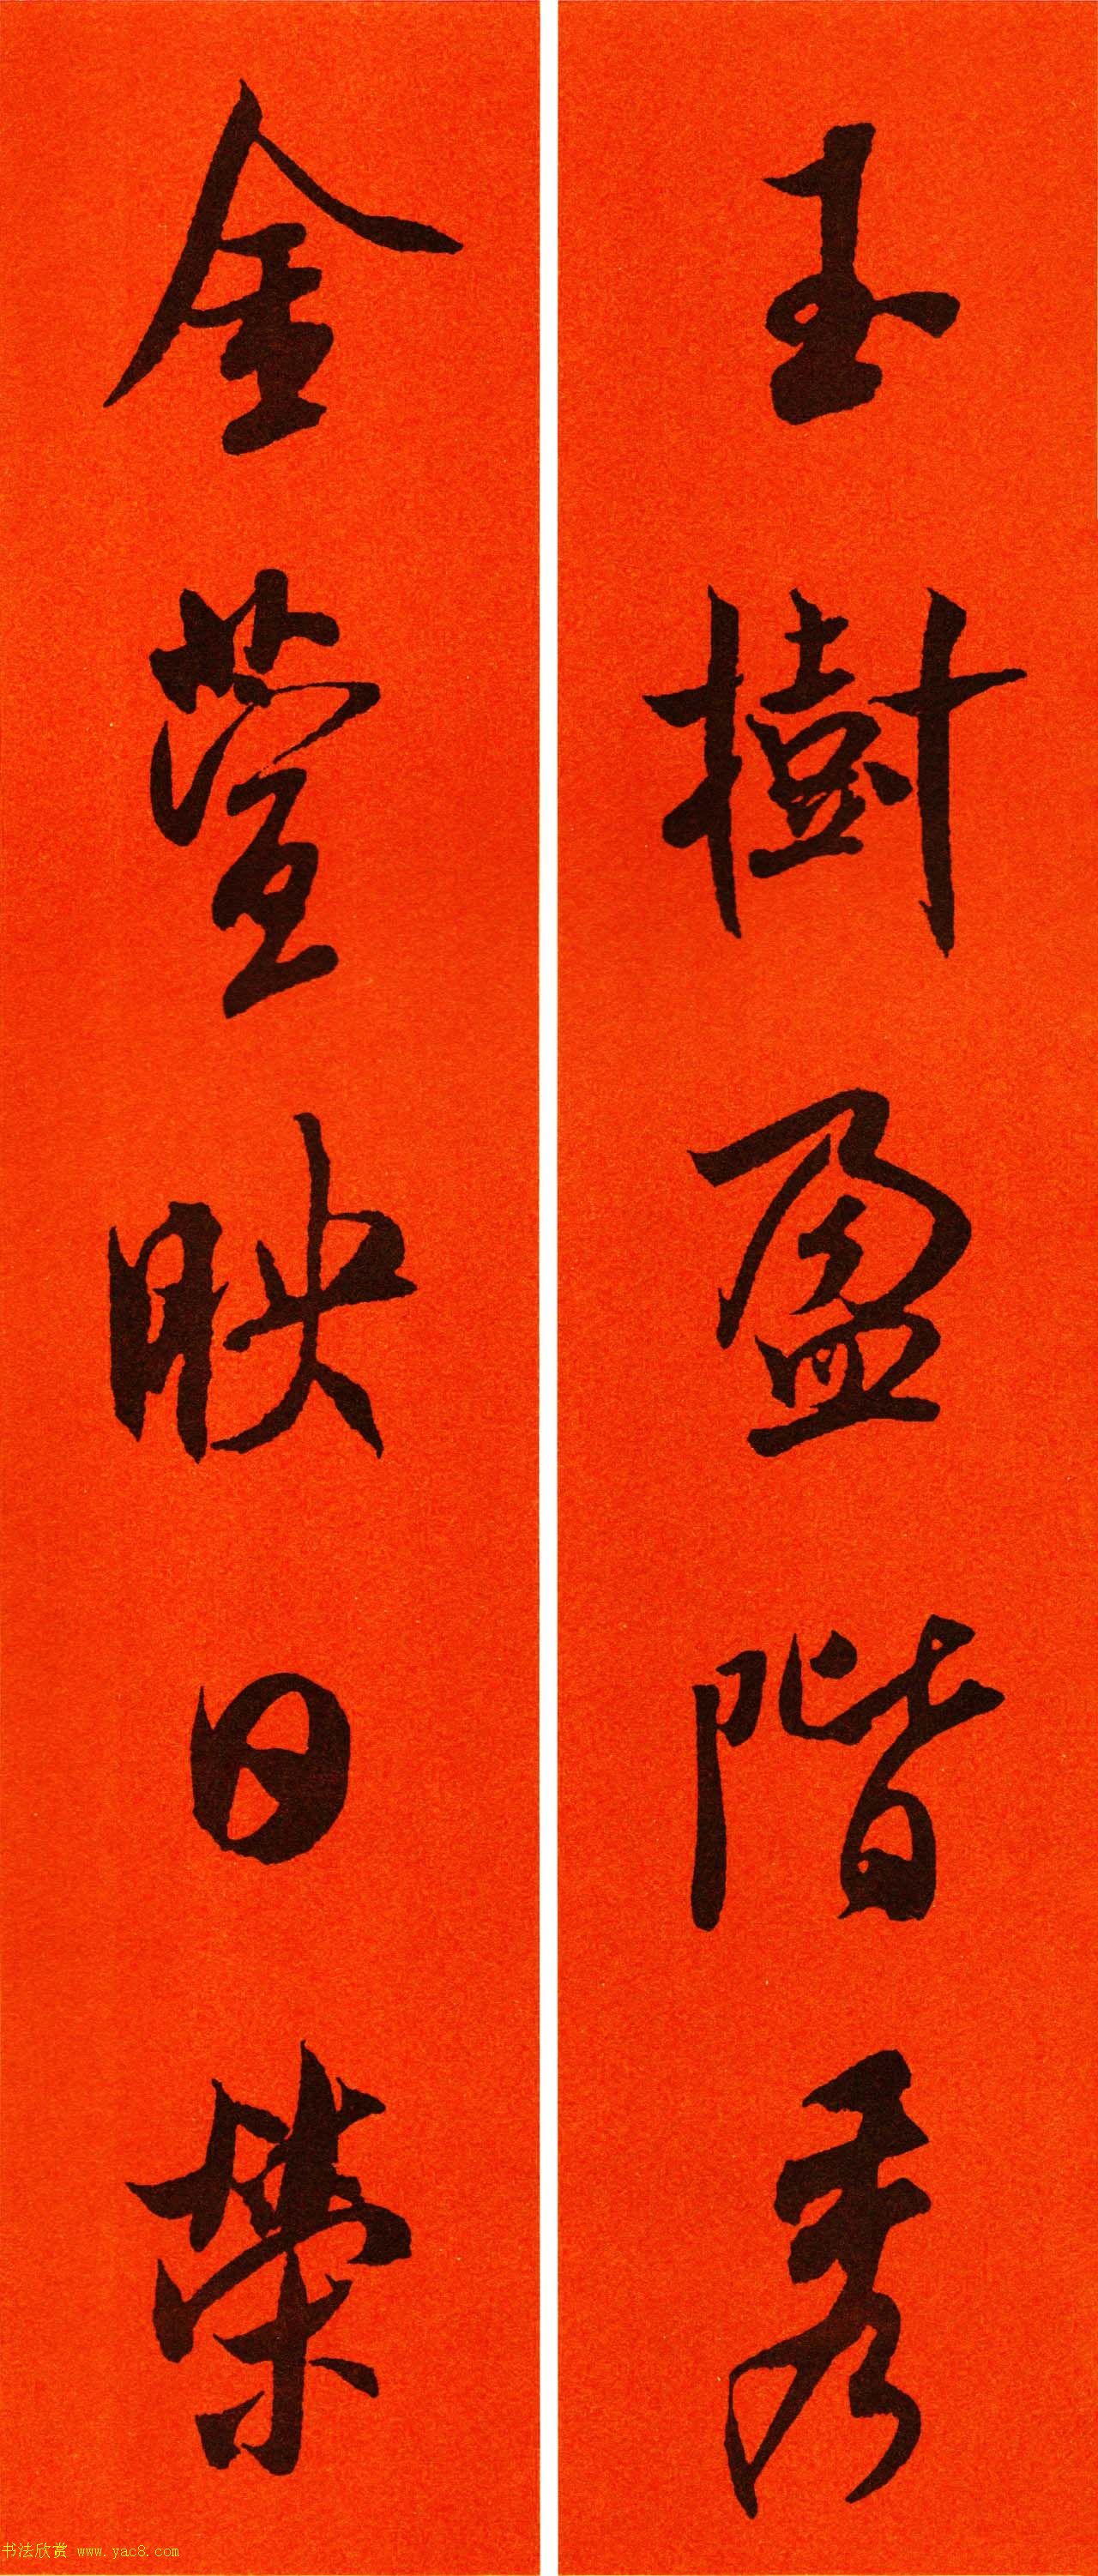 玉樹盈階秀
金萱映日榮
书法欣赏 www.yac8.com